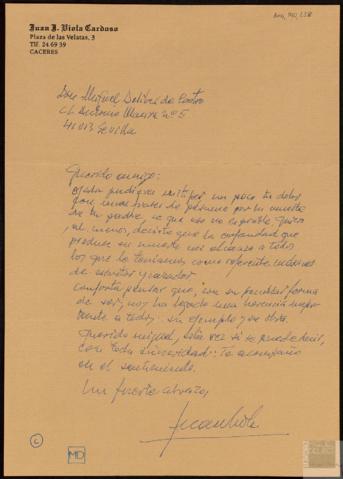 Juan J. Viola Cardoso
Plaza de las Veletas, 3
Tlf. 24 69 39
CACERES
Don Miguel Delibes de Castro
41013 Sevilla
Querido amigo:
Ojalá pudiera mitigar un poco tu dolor
con unas frases de pésame por la muerte
de tu padre, ya que eso no es posible. Quiero,
al menos, decirte que la orfandad que
produce su muerte nos alcanza a todos
los que lo teníamos como referente máximo
de escritor y cazador
Conforta pensar que, con su peculiar forma
de ser, nos ha legado una herencia impor
tante a todos: su ejemplo y su obra.
Querido Miguel, esta vez sí se puede decir,
con toda sinceridad: te acompaño
en el sentimiento.
Un fuerte abrazo,
Juan Viola
C
MD